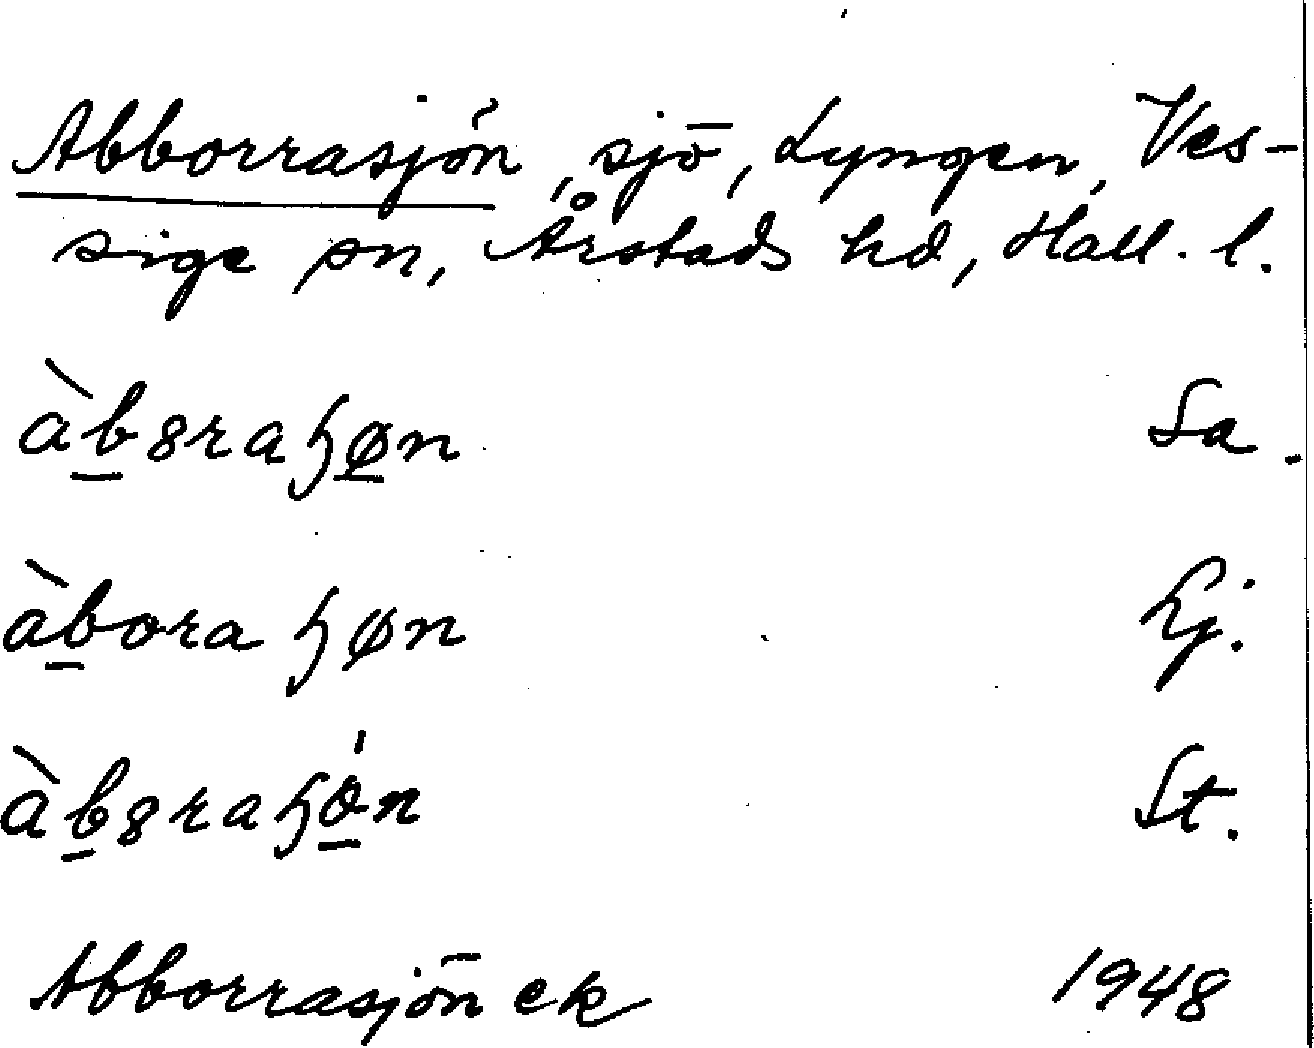 Abborrasjön, sjö, Lyngen, Ves-
sige sn, Årstads hd, Hall. l.
àb̲ɜraɧø̲n Sa.
àb̲oraɧøn Lj.
àb̲ɜraɧǿ̲n St.
Abborrasjön ek 1948